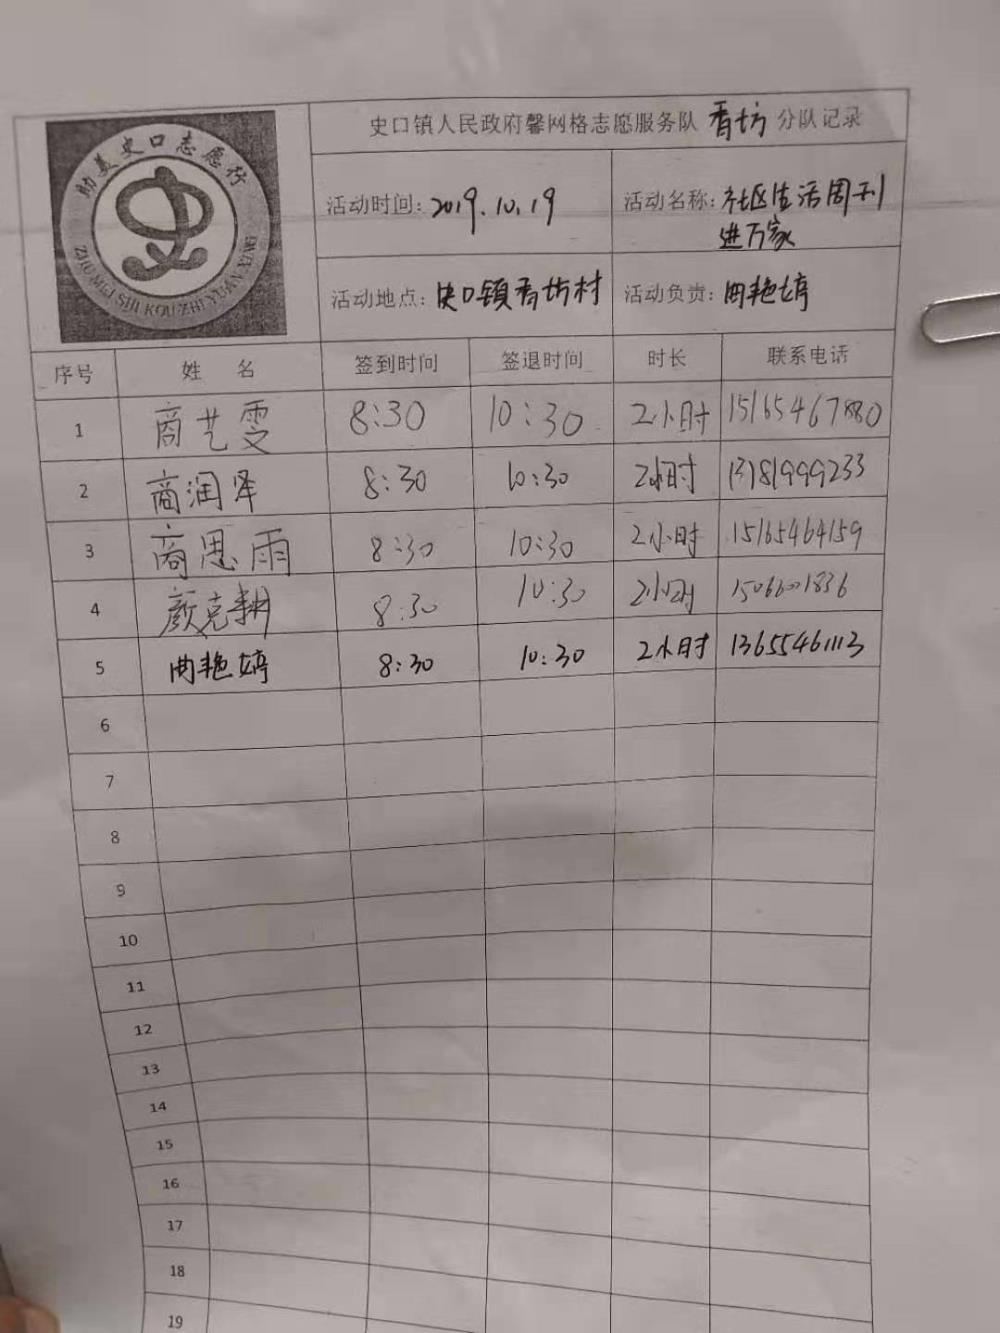 助美史口志愿行
ZHU MEI SHI KOU ZHI YUAN XING
史口镇人民政府馨网格志愿服务队 香坊 分队记录
活动时间: 2019.10.19
活动名称: 社区生活周刊
进万家
活动地点: 史口镇香坊村
活动负责: 曲艳婷
序号 姓 名 签到时间 签退时间 时长 联系电话
1 商艺雯 8:30 10:30 2小时 15165467880
2 商润泽 8:30 10:30 2小时 13181999233
3 商思雨 8:30 10:30 2小时 15165464159
4 颜克翔 8:30 10:30 2小时
5 曲艳婷 8:30 10:30 2小时 13655461113
6
7
8
9
10
11
12
13
14
15
16
17
18
19